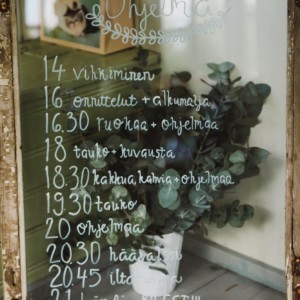 Ohjelma
14 vihkiminen
16 onnittelut + alkumalja
16.30 ruokaa + ohjelmaa
18 tauko + kuvausta
18.30 kakkua, kahvia + ohjelmaa
19.30 tauko
20 ohjelmaa
20.30 häävalssi
20.45
21